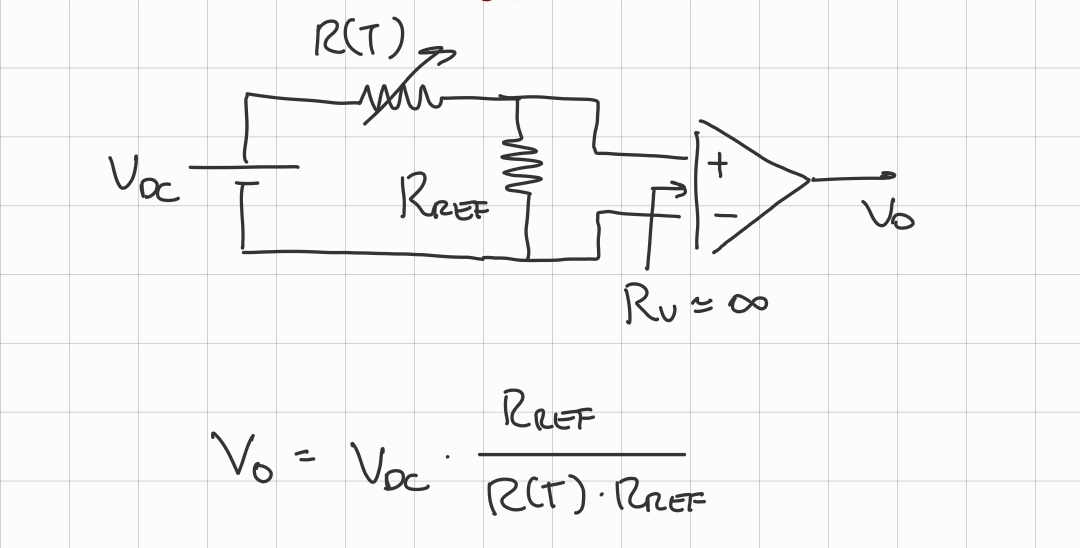 R(T)
V_DC
R_REF
+
−
V_O
R_V ≃ ∞
V_O = V_DC · R_REF / R(T) · R_REF